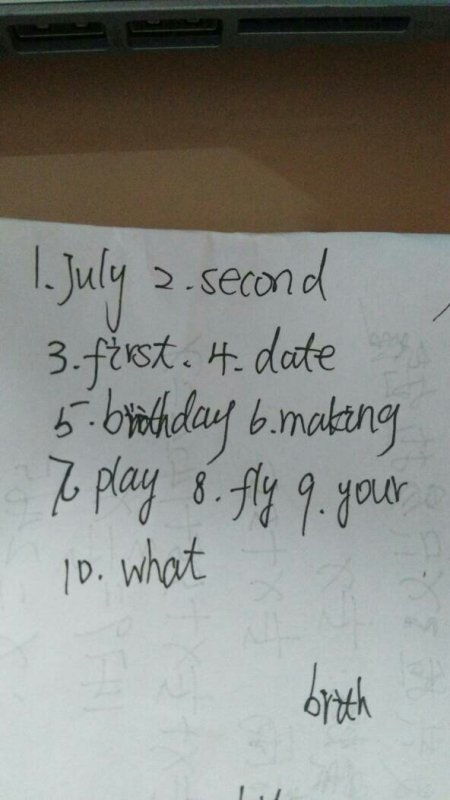 1. July 2. second
3. first. 4. date
5. birthday 6. making
7. play 8. fly 9. your
10. what